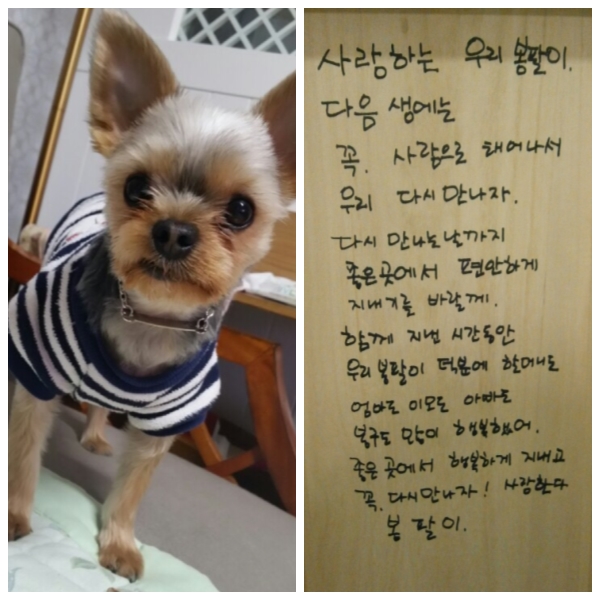 사랑하는 우리 봉팔이.
다음 생에는
꼭. 사람으로 태어나서
우리 다시 만나자.
다시 만나는날까지
좋은곳에서 편안하게
지내기를 바랄께.
함께 지낸 시간동안
우리봉팔이 덕분에 할머니도
엄마도 이모도 아빠도
봉구도 많이 행복했어.
좋은 곳에서 행복하게 지내고
꼭. 다시만나자! 사랑한다
봉팔이.